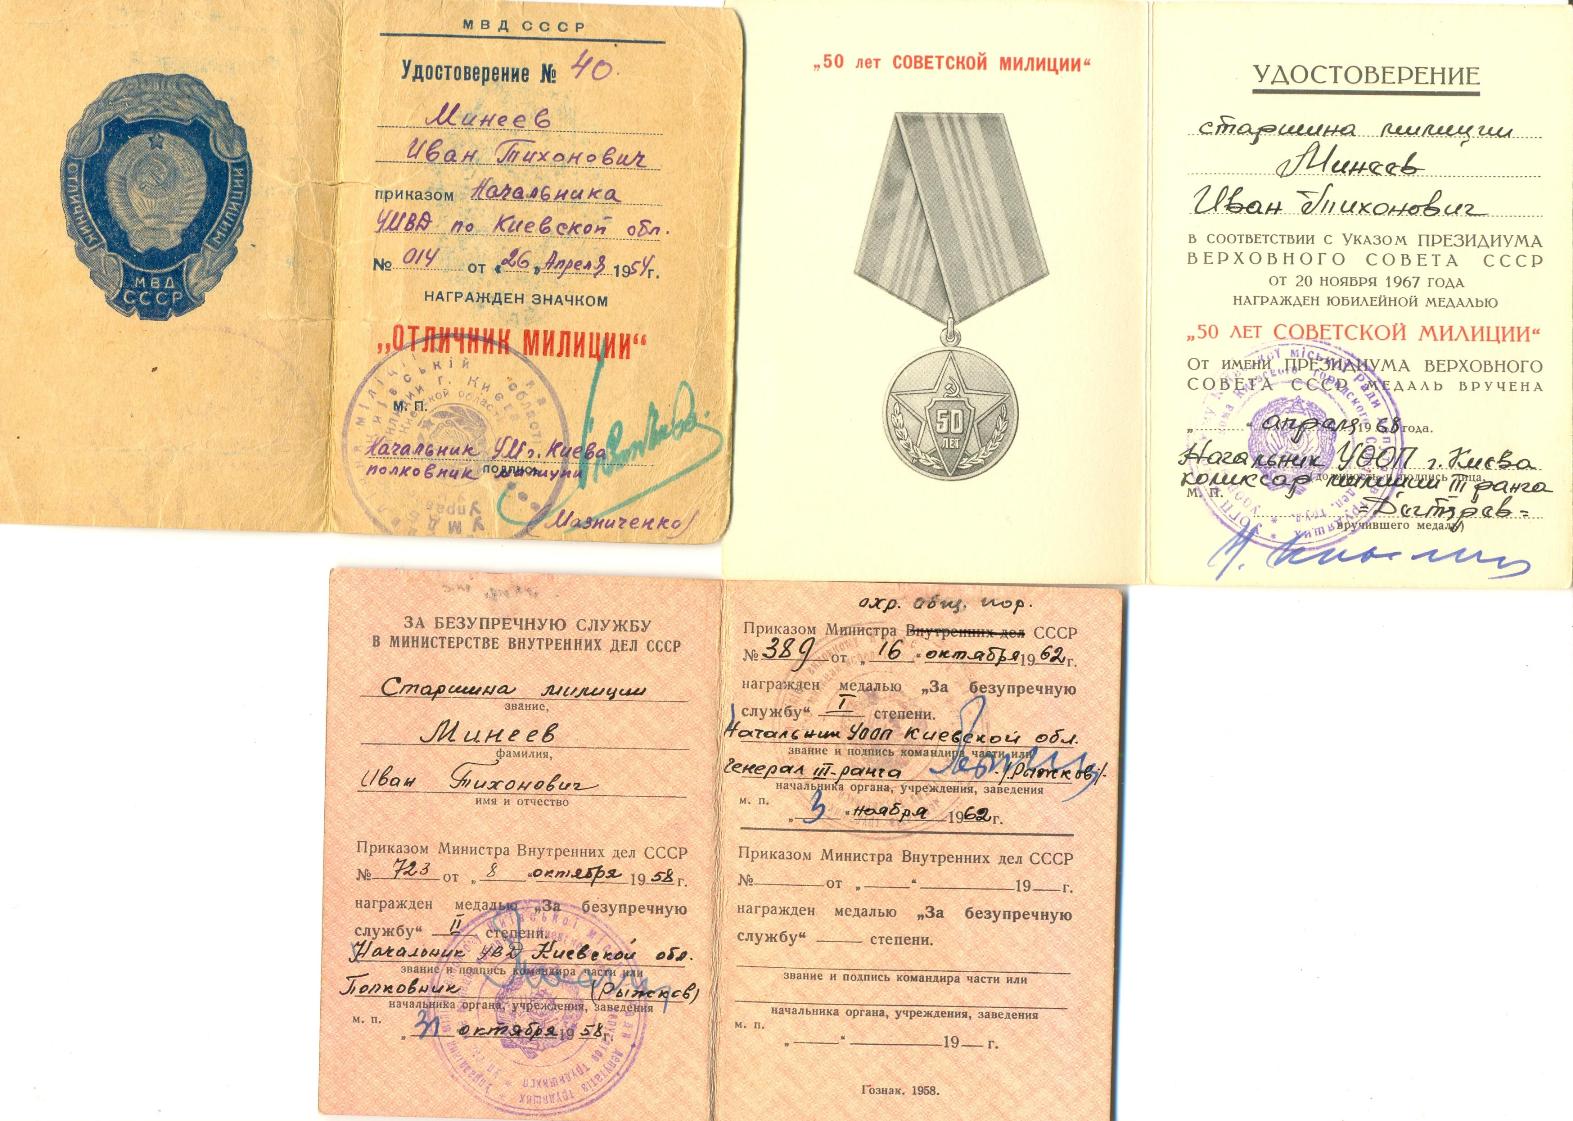 ОТЛИЧНИК МИЛИЦИИ
МВД
СССР
МВД СССР
Удостоверение № 40.
Минеев
Иван Тихонович
приказом Начальника
УМВД по Киевской обл.
№ 014 от „26„ Апреля 1954г.
НАГРАЖДЕН ЗНАЧКОМ
„ОТЛИЧНИК МИЛИЦИИ“
М. П.
Начальник УМ г. Киева
подпись
полковник милиции
(Мазниченко)
„50 лет СОВЕТСКОЙ МИЛИЦИИ“
50
ЛЕТ
УДОСТОВЕРЕНИЕ
старшина милиции
Минеев
Иван Тихонович
В СООТВЕТСТВИИ С УКАЗОМ ПРЕЗИДИУМА
ВЕРХОВНОГО СОВЕТА СССР
ОТ 20 НОЯБРЯ 1967 ГОДА
НАГРАЖДЕН ЮБИЛЕЙНОЙ МЕДАЛЬЮ
„50 ЛЕТ СОВЕТСКОЙ МИЛИЦИИ“
ОТ ИМЕНИ ПРЕЗИДИУМА ВЕРХОВНОГО
СОВЕТА СССР МЕДАЛЬ ВРУЧЕНА
„ “ апреля 1968 года.
Начальник УООП г. Киева
(должность и подпись лица,
комиссар милиции III ранга
М. П.
вручившего медаль)
ЗА БЕЗУПРЕЧНУЮ СЛУЖБУ
В МИНИСТЕРСТВЕ ВНУТРЕННИХ ДЕЛ СССР
Старшина милиции
звание,
Минеев
фамилия,
Иван Тихонович
имя и отчество
Приказом Министра Внутренних дел СССР
№ 723 от „ 8 “ октября 1958 г.
награжден медалью „За безупречную
службу“ II степени.
Начальник УВД Киевской обл.
звание и подпись командира части или
Полковник (Рыжков)
начальника органа, учреждения, заведения
м. п.
„ 31 “ октября 1958г.
охр. общ. пор.
Приказом Министра Внутренних дел СССР
№ 389 от „ 16 “ октября 1962 г.
награжден медалью „За безупречную
службу“ I степени.
Начальник УООП Киевской обл.
звание и подпись командира части или
Генерал III-ранга (Рыжков)
начальника органа, учреждения, заведения
м. п.
„ 3 “ ноября 1962 г.
Приказом Министра Внутренних дел СССР
№ от „ “ 19 г.
награжден медалью „За безупречную
службу“ степени.
звание и подпись командира части или
начальника органа, учреждения, заведения
м. п.
„ “ 19 г.
Гознак. 1958.